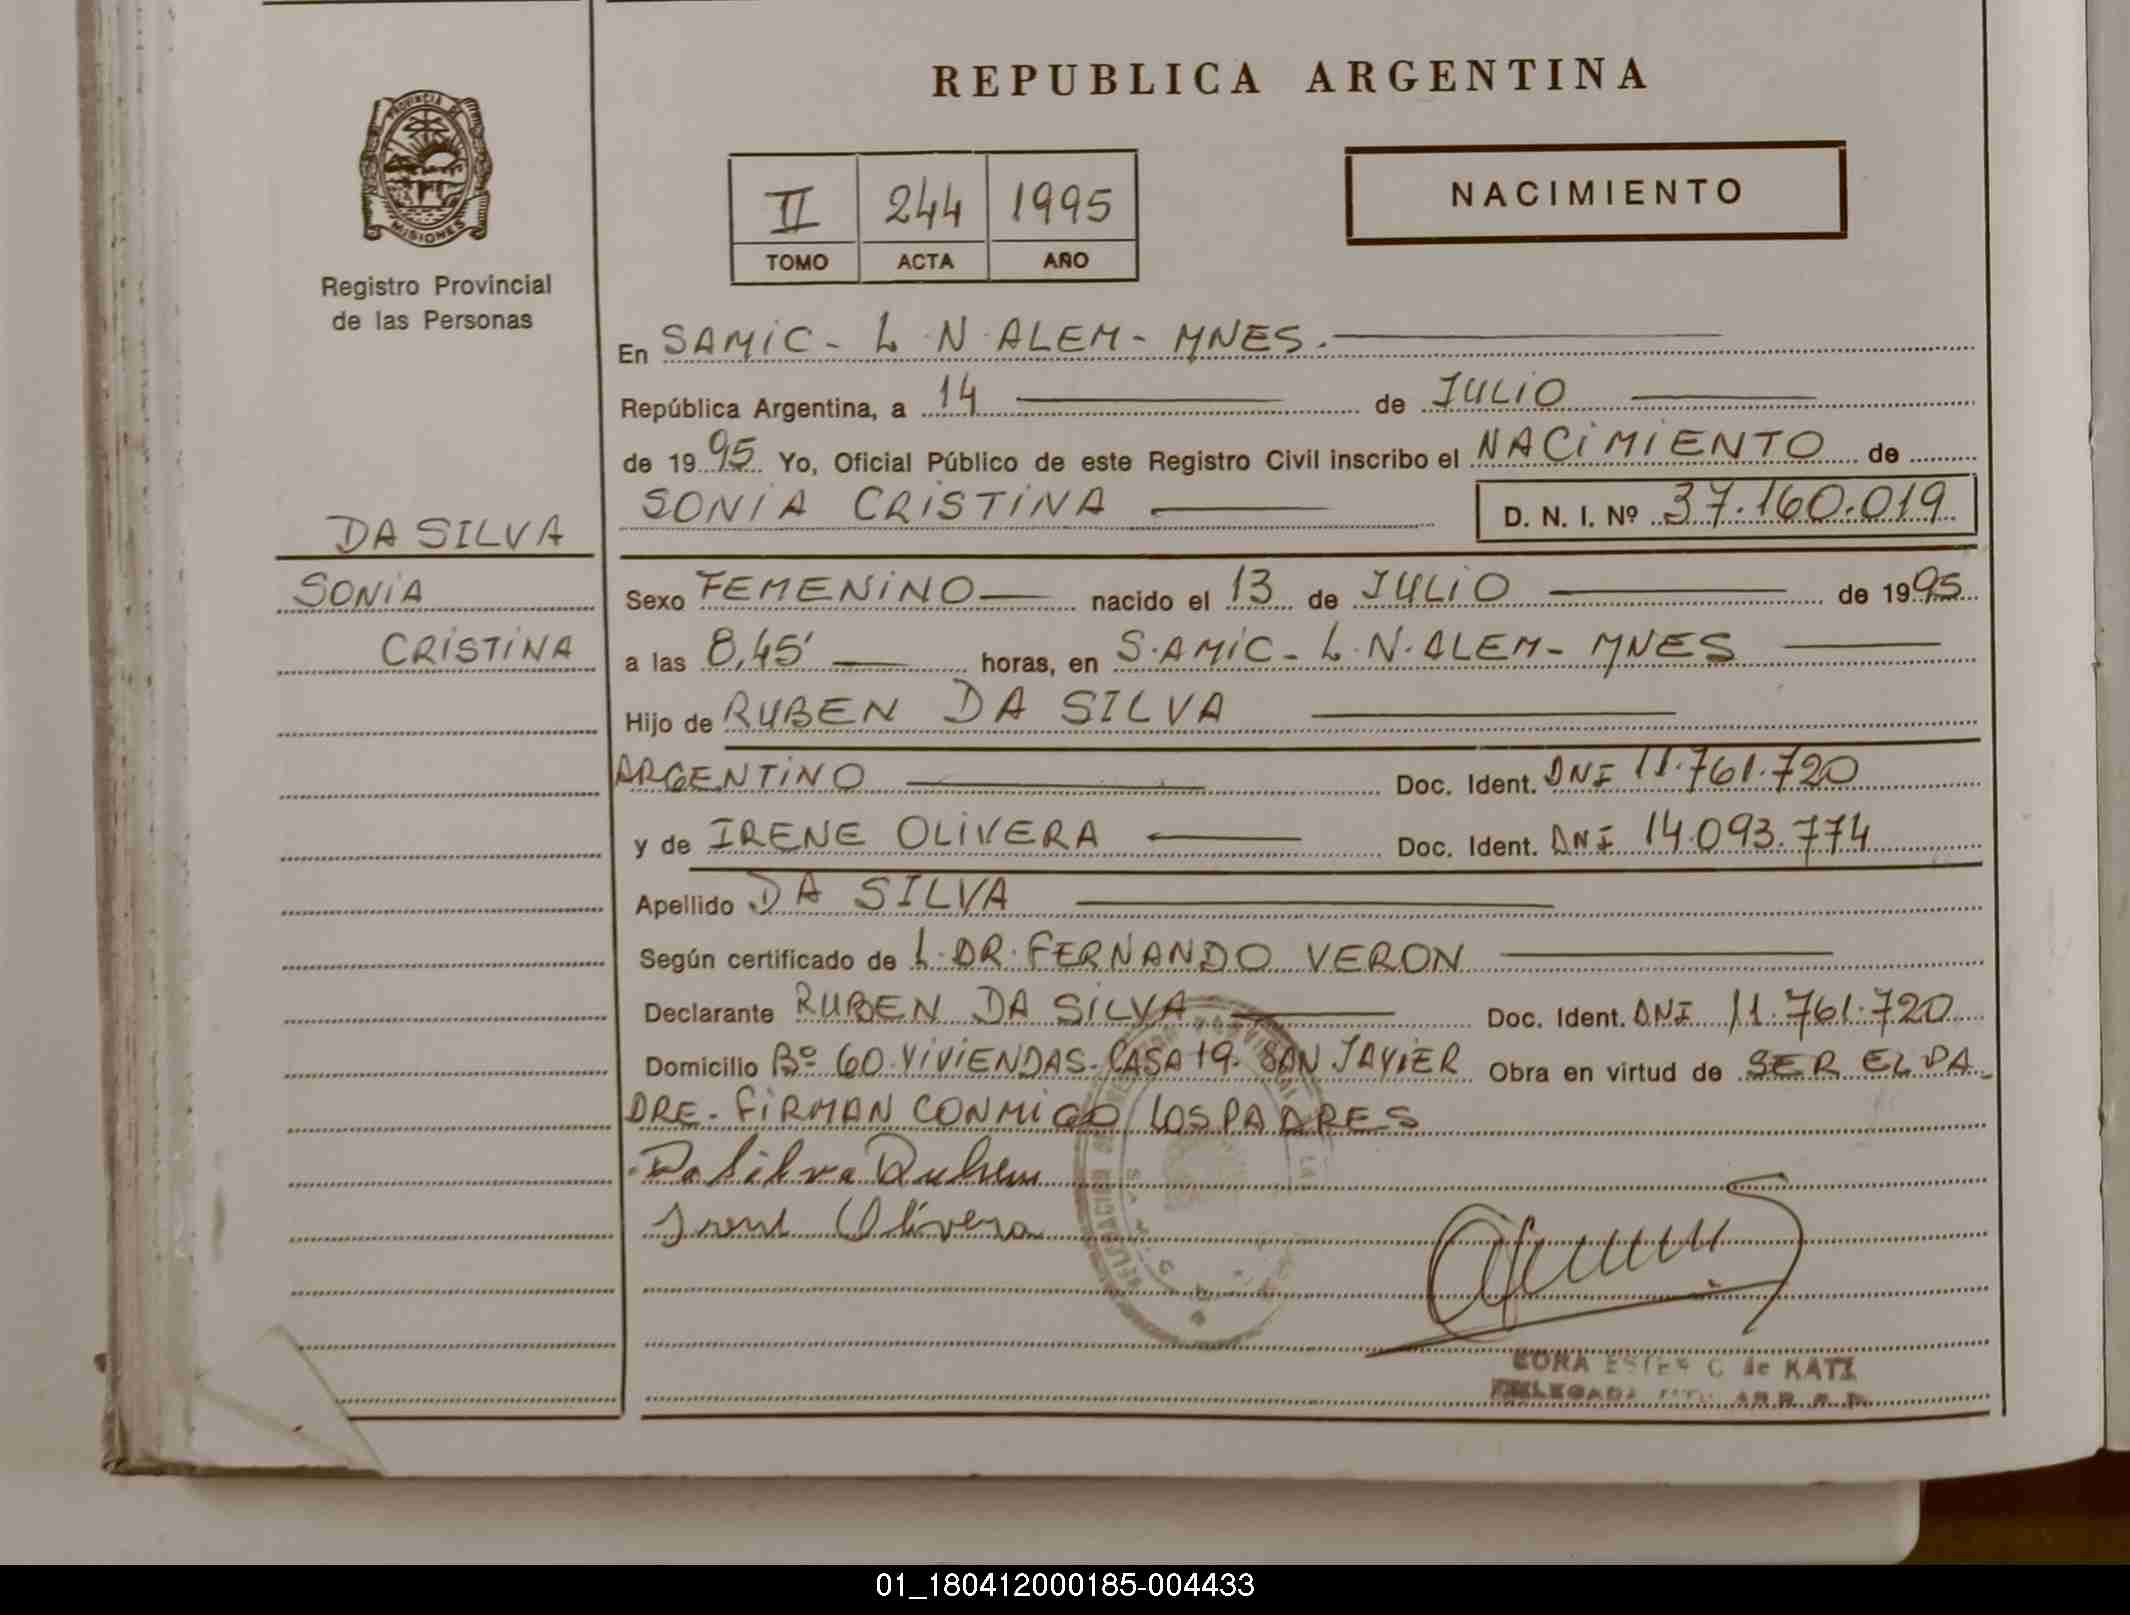 REPUBLICA ARGENTINA
PROVINCIA DE
MISIONES
Registro Provincial
de las Personas
II 244 1995
TOMO ACTA AÑO
NACIMIENTO
En SAMIC - L. N. ALEM - MNES.
República Argentina, a 14 de JULIO
de 1995 Yo, Oficial Público de este Registro Civil inscribo el NACIMIENTO de
SONIA CRISTINA D. N. I. Nº 37.160.019
DA SILVA
SONIA
CRISTINA
Sexo FEMENINO nacido el 13 de JULIO de 1995
a las 8,45' horas, en S.AMIC - L. N. ALEM - MNES
Hijo de RUBEN DA SILVA
ARGENTINO Doc. Ident. DNI 11.761.720
y de IRENE OLIVERA Doc. Ident. DNI 14.093.774
Apellido DA SILVA
Según certificado de L. DR. FERNANDO VERON
Declarante RUBEN DA SILVA Doc. Ident. DNI 11.761.720
Domicilio Bº 60 VIVIENDAS - CASA 19 - SAN JAVIER Obra en virtud de SER EL PA
DRE - FIRMAN CONMIGO LOS PADRES
Da Silva Ruben
Irene Olivera
C de KATZ
DELEGADA
01_180412000185-004433